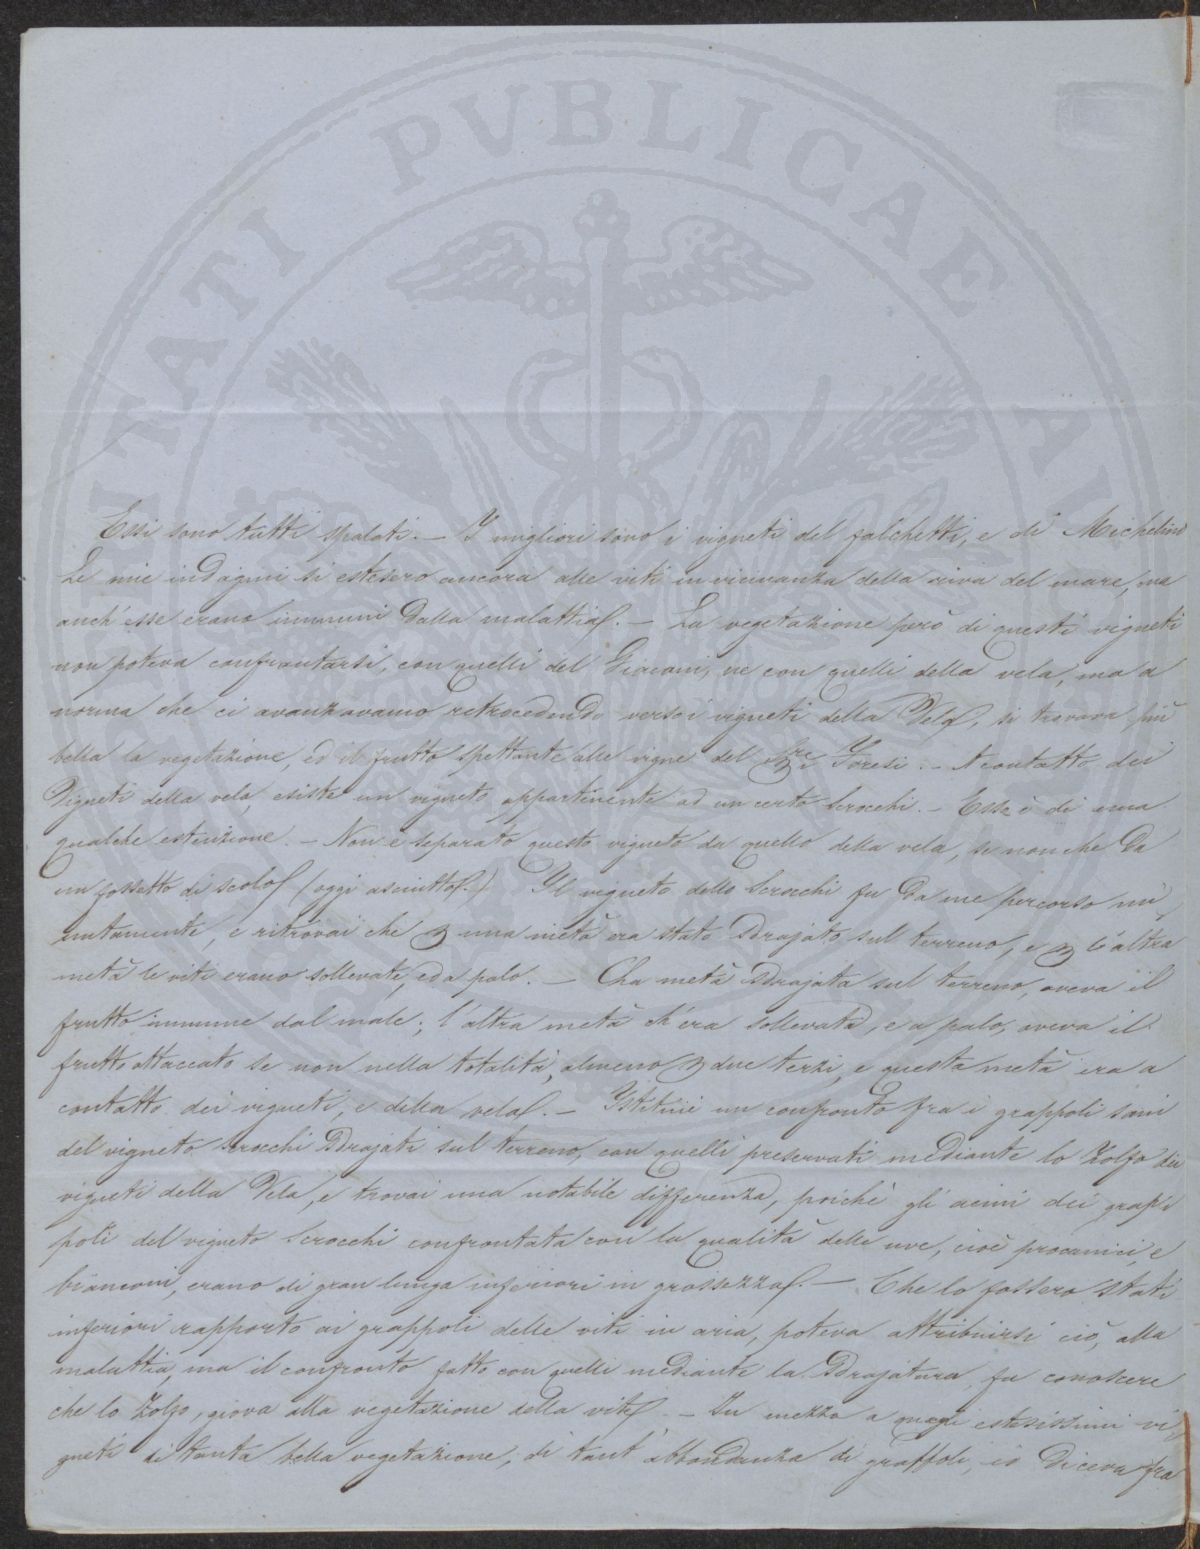 PVBLICAE
Essi sono tutti spalati. — I migliori sono i vigneti del falchetti, e di Michelini
Le mie indagini si estesero ancora alle viti in vicinanza della riva del mare, ma
anch'esse erano immuni dalla malattia. — La vegetazione però di questi vigneti
non poteva confrontarsi, con quelli del Giacani, ne con quelli della vela, ma a
norma che ci avanzavamo retrocedendo verso i vigneti della Vela, si trovava più
bella la vegetazione, ed il frutto spettante alle vigne del Sigri. — A contatto dei
Vigneti della vela, esiste un vigneto appartinente ad un certo Scrocchi. — Esso è di una
qualche estenzione. — Non è separato questo vigneto da quello della vela, se non che da
un fossetto di scolo (oggi asciutto.) Il vigneto dello Scrocchi fu da me percorso mi¬
nutamente, e ritrovai che p una metà era stato sdrajato sull terreno, e p l'altra
metà le viti erano sollevate, ed a palo. — Cha metà sdrajata sul terreno, aveva il
frutto immune dal male; l'altra metà ch'era sollevata, e a palo, aveva il
frutto attaccato se non nella totalità, almeno p due terzi, e questa metà era a
contatto dei vigneti, e della vela. — Istituii un confronto fra i grappoli sani
del vigneto Scrocchi sdrajati sul terreno, con quelli preservati mediante lo Zolfo dei
vigneti della Vela, e trovai una notabile differenza, poichè gli acini dei grap¬
poli del vigneto Scrocchi confrontata con la qualità delle uve, cioè procanici, e
bianconi, erano di gran lunga inferiori in grossezza. — Che lo fossero stati
inferiori rapporto ai grappoli delle viti in aria, poteva attribuirsi ciò, alla
malattia, ma il confronto fatto con quelli mediante la sdrajatura, fu conoscere
che lo Zolfo, giova alla vegetazione della vite. — In mezzo a quegli estesissimi vi¬
gneti di tanta bella vegetazione, di tant'abbondanza di grappoli, io diceva fra